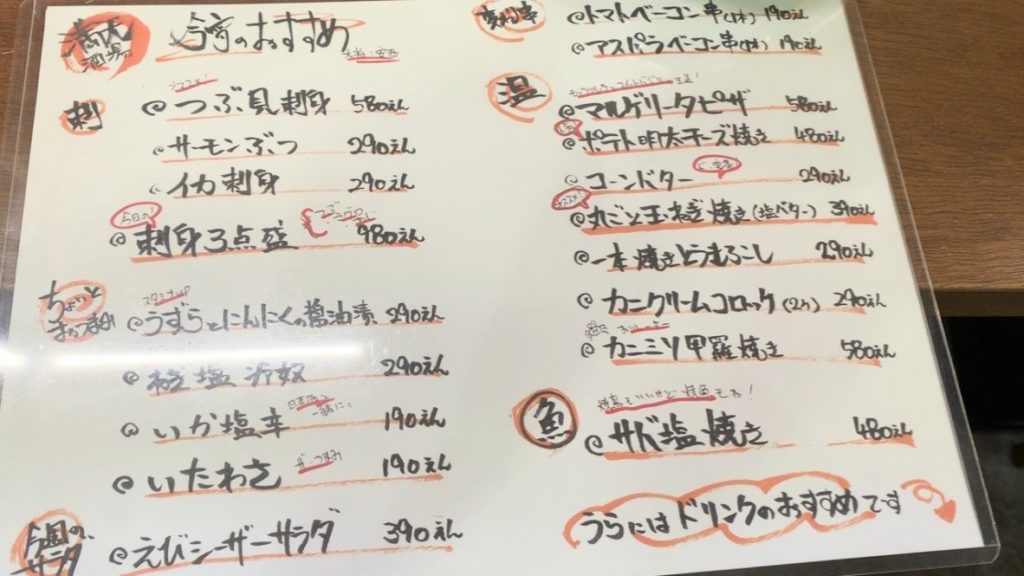 満天
酒場。
今宵のおすすめ
刺
つぶ貝刺身 580えん
サーモンぶつ 290えん
イカ刺身 290えん
今日の!
刺身3点盛 980えん
ちょいと
スタミナup
うずらとにんにくの醤油漬 290えん
ねぎ塩冷奴 290えん
日本酒と
一緒に。
いか塩辛 190えん
ザ・つまみ
いたわさ 190えん
今週の、
サラダ
えびシーザーサラダ 390えん
トマトベーコン串(1本) 190えん
アスパラベーコン串(1本) 190えん
温
マルゲリータピザ 580えん
ポテト明太チーズ焼き 480えん
コーンバター 290えん
オススメ!
丸ごと玉ねぎ焼き(塩バター) 390えん
一本焼きとうもろこし 290えん
カニクリームコロッケ(2ケ) 290えん
カニミソ甲羅焼き 580えん
魚
サバ塩焼き 480えん
うらにはドリンクのおすすめです